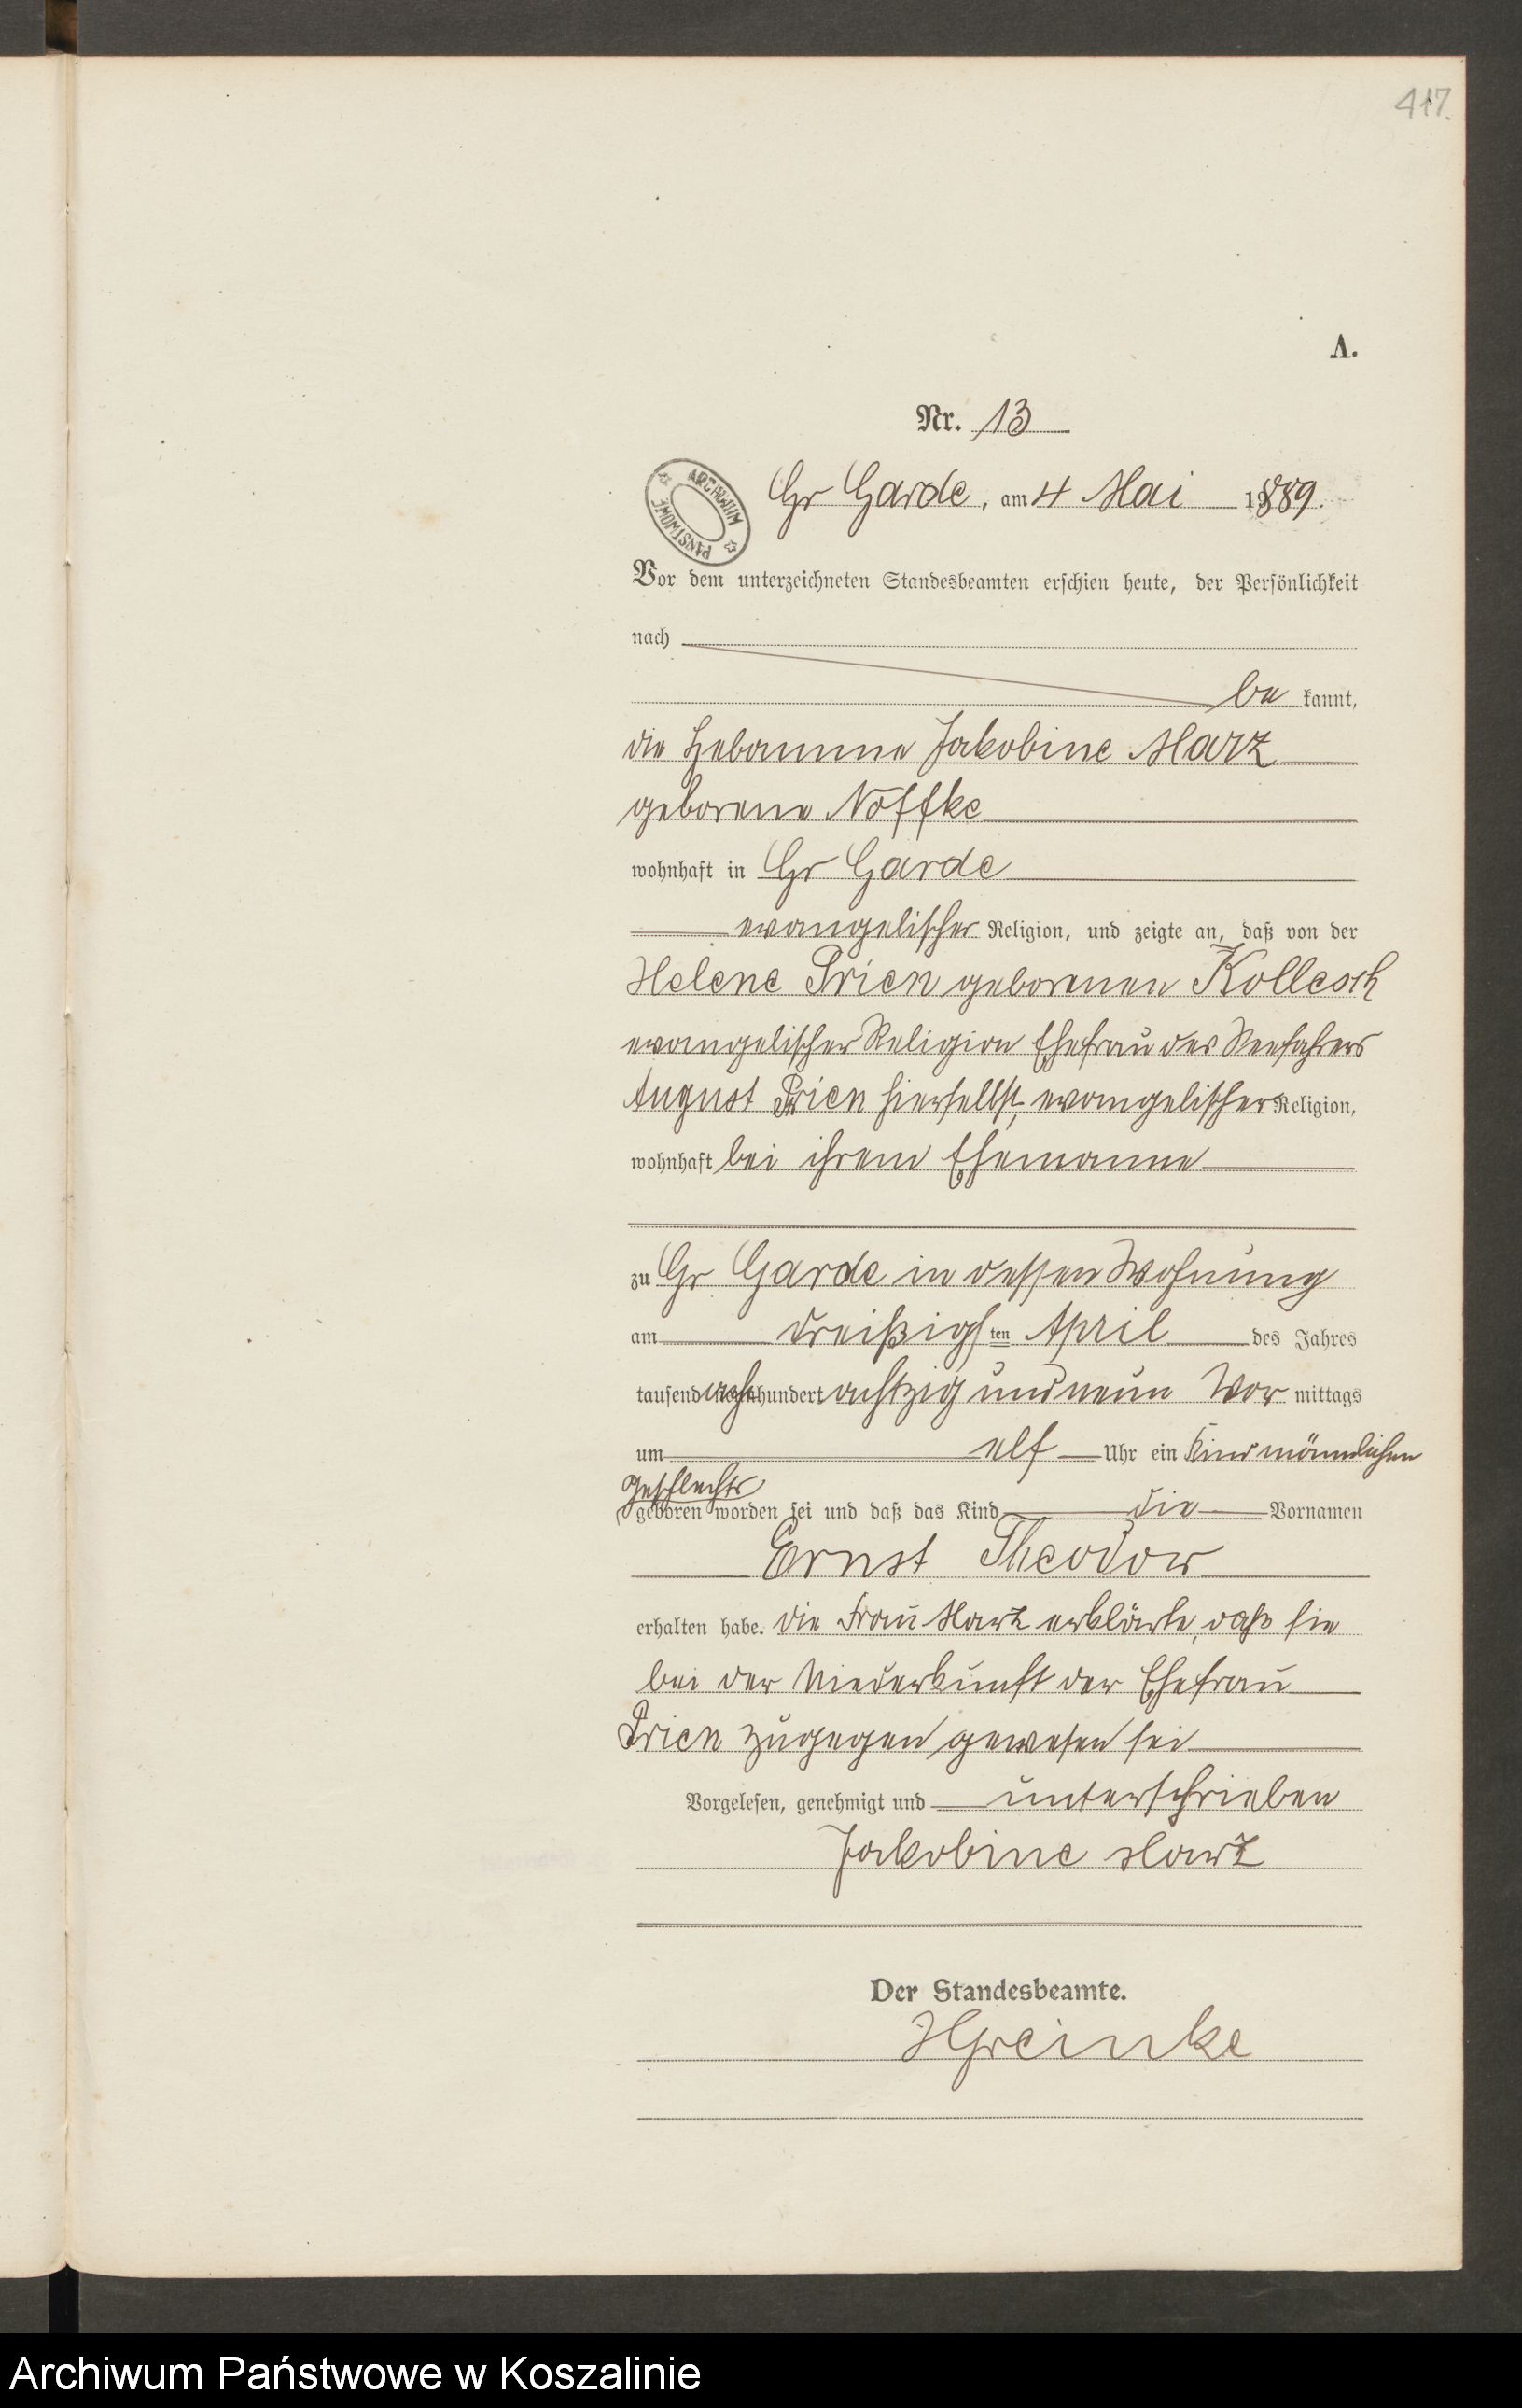 417.
A.
Nr. 13
ARCHIWUM PAŃSTWOWE
Gr Garde, am 4 Mai 1889.
Vor dem unterzeichneten Standesbeamten erschien heute, der Persönlichkeit
nach
be kannt,
die Hebamme Jakobine Marz
geborene Noffke
wohnhaft in Gr Garde
evangelischer Religion, und zeigte an, daß von der
Helene Prien geborenen Kollesch
evangelischer Religion Ehefrau des Seefahrers
August Prien hierselbst, evangelischer Religion,
wohnhaft bei ihrem Ehemanne
zu Gr Garde in dessen Wohnung
am dreißigsten April des Jahres
tausend acht hundert achtzig und neun Vor mittags
um elf Uhr ein Kind männlichen
Geschlechts
geboren worden sei und daß das Kind die Vornamen
Ernst Theodor
erhalten habe. Die Frau Marz erklärte, daß sie
bei der Niederkunft der Ehefrau
Prien zugegen gewesen sei
Vorgelesen, genehmigt und unterschrieben
Jakobine Marz
Der Standesbeamte.
HGreinke
Archiwum Państwowe w Koszalinie